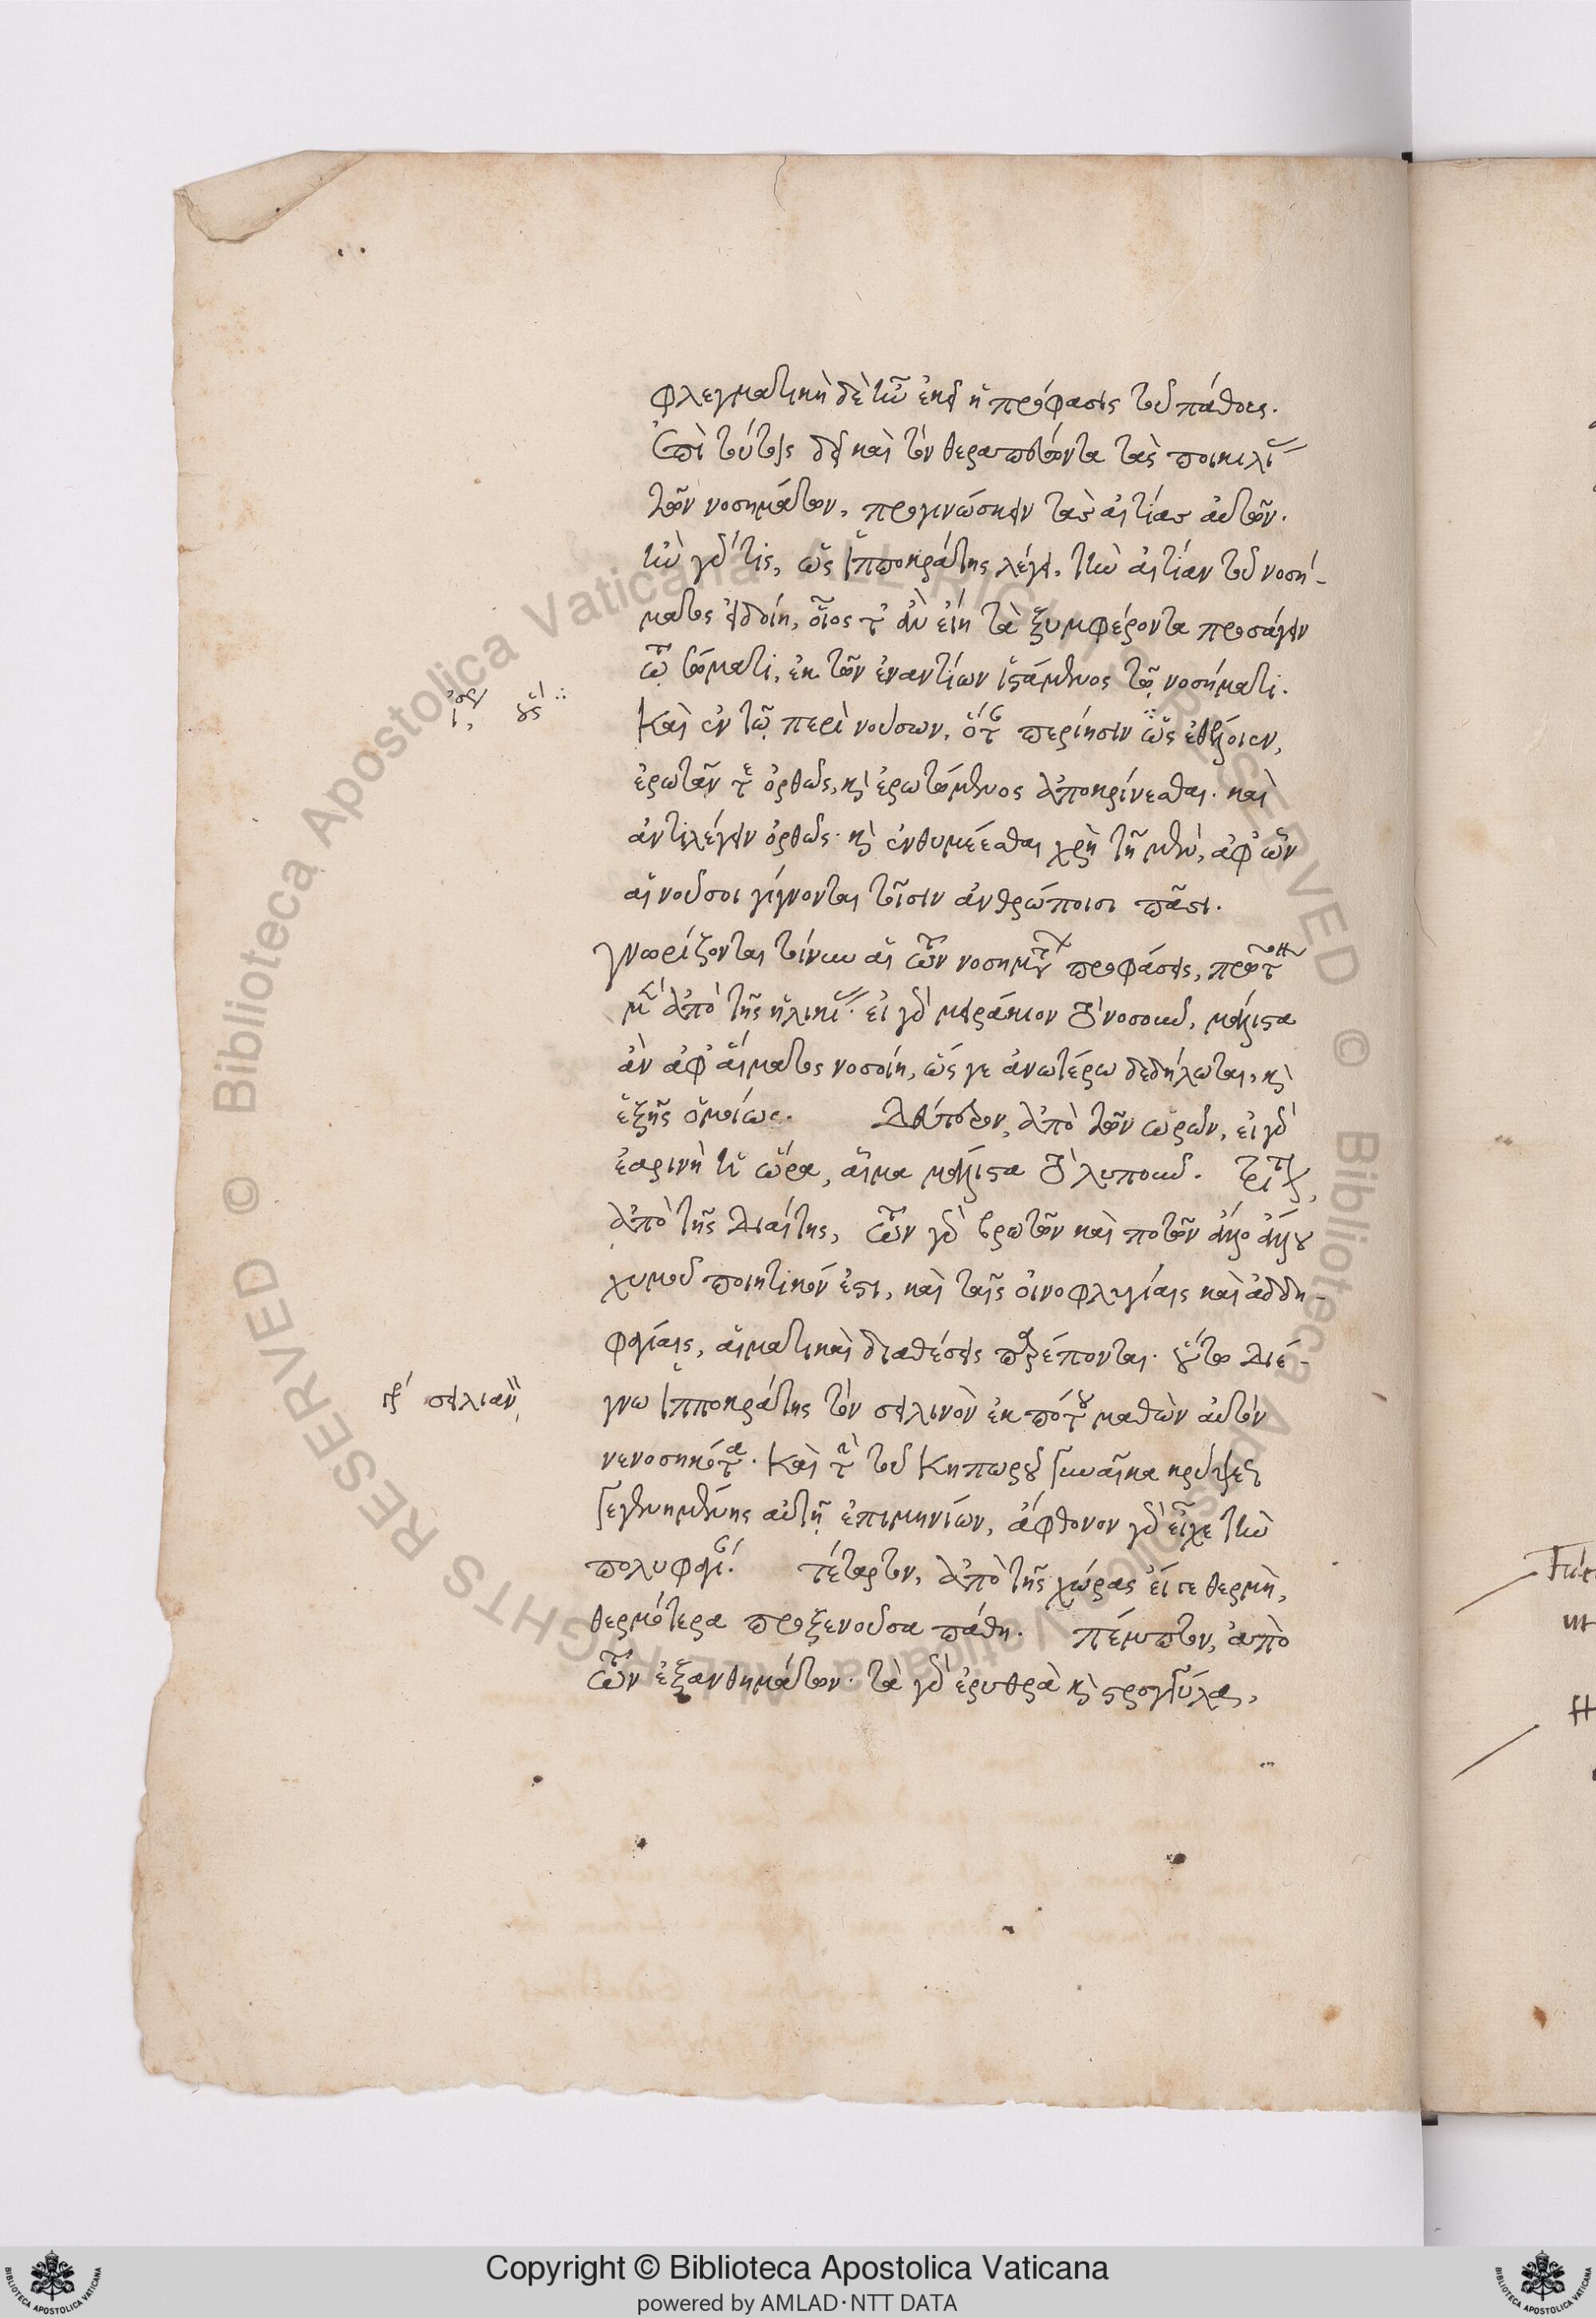 φλεγματικὴ δὲ ἦν ἐκεῖ ἡ πρόφασις τοῦ πάθους.
Ἐπὶ τούτοις δεῖ καὶ τὸν θεραπεύοντα τὰς ποικιλί
τῶν νοσημάτων, προγινώσκειν τὰς αἰτίας αὐτῶν.
ἢν γάρ τις, ὡς Ἱπποκράτης λέγει, τὴν αἰτίαν τοῦ νοσή-
ματος εἰδοίη, οἷός τ' ἂν εἴη τὰ ξυμφέροντα προσάγειν
τῷ σώματι, ἐκ τῶν ἐναντίων ἱστάμενος τῷ νοσήματι.
Καὶ ἐν τῷ περὶ νούσων, περίησιν ὡς ἐθέλοιεν,
ἐρωτᾶν τε ὀρθῶς, καὶ ἐρωτώμενος ἀποκρίνεσθαι. καὶ
ἀντιλέγειν ὀρθῶς. καὶ ἐνθυμέεσθαι χρὴ τῇ μὲν, ἀφ' ὧν
αἱ νοῦσοι γίγνονται τοῖσιν ἀνθρώποισι πᾶσι.
γνωρίζονται τοίνυν αἱ τῶν νοσημάτων προφάσεις, πρῶτον
μὲν ἀπὸ τῆς ἡλικί. εἰ γὰρ μειράκιον τὸ νοσοῦν, μάλιστα
ἂν ἀφ' αἵματος νοσοίη, ὥς γε ἀνωτέρω δεδήλωται, καὶ
ἑξῆς ὁμοίως. Δεύτερον, ἀπὸ τῶν ὡρῶν, εἰ γὰρ
ἐαρινὴ ἡ ὥρα, αἷμα μάλιστα τὸ λυποῦν. τρίτον,
ἀπὸ τῆς διαίτης, τῶν γὰρ βρωτῶν καὶ ποτῶν ἄλλο ἄλλου
χυμοῦ ποιητικόν ἐστι, καὶ ταῖς οἰνοφλυγίαις καὶ ἀδδη-
φαγίαις, αἱματικαὶ διαθέσεις παρέπονται. οὕτω διέ-
γνω Ἱπποκράτης τὸν σειλινὸν ἐκ πότου μαθὼν αὐτὸν
νενοσηκότα. Καὶ τὴν τοῦ Κηπωροῦ γυναῖκα κρύψει
γεγενημένης αὐτῇ ἐπιμηνίων, ἄφθονον γὰρ εἶχε τὴν
πολυφαγί. τέταρτον, ἀπὸ τῆς χώρας εἴ γε θερμή,
θερμότερα προξενοῦσα πάθη. πέμπτον, ἀπὸ
τῶν ἐξανθημάτων. τὰ γὰρ ἐρυθρὰ καὶ στρογγύλα,
σειλιαν